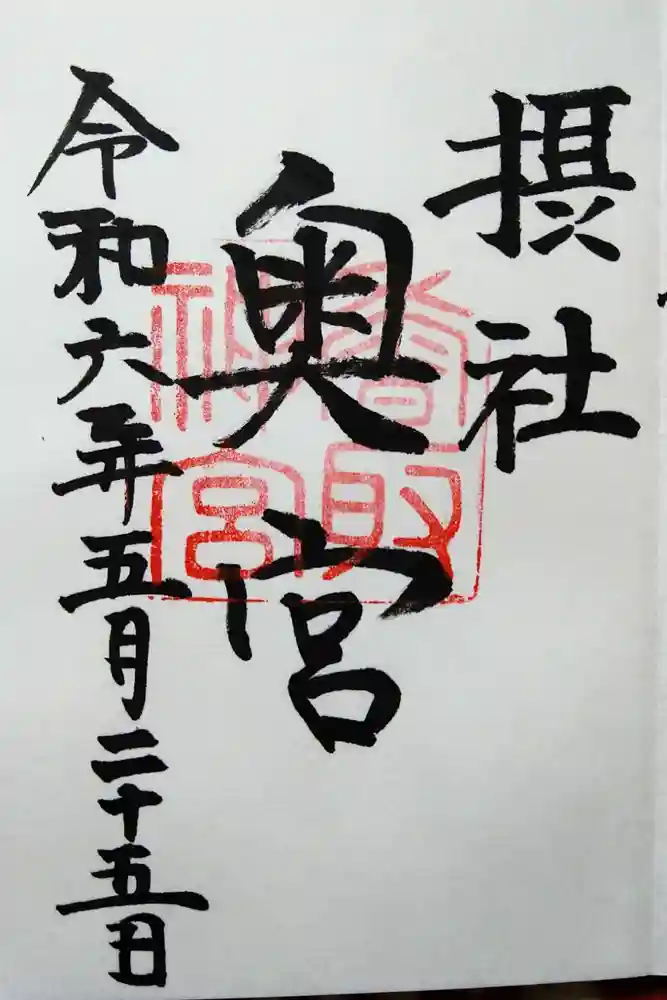 摂社
奥宮
香取神宮
令和六年五月二十五日